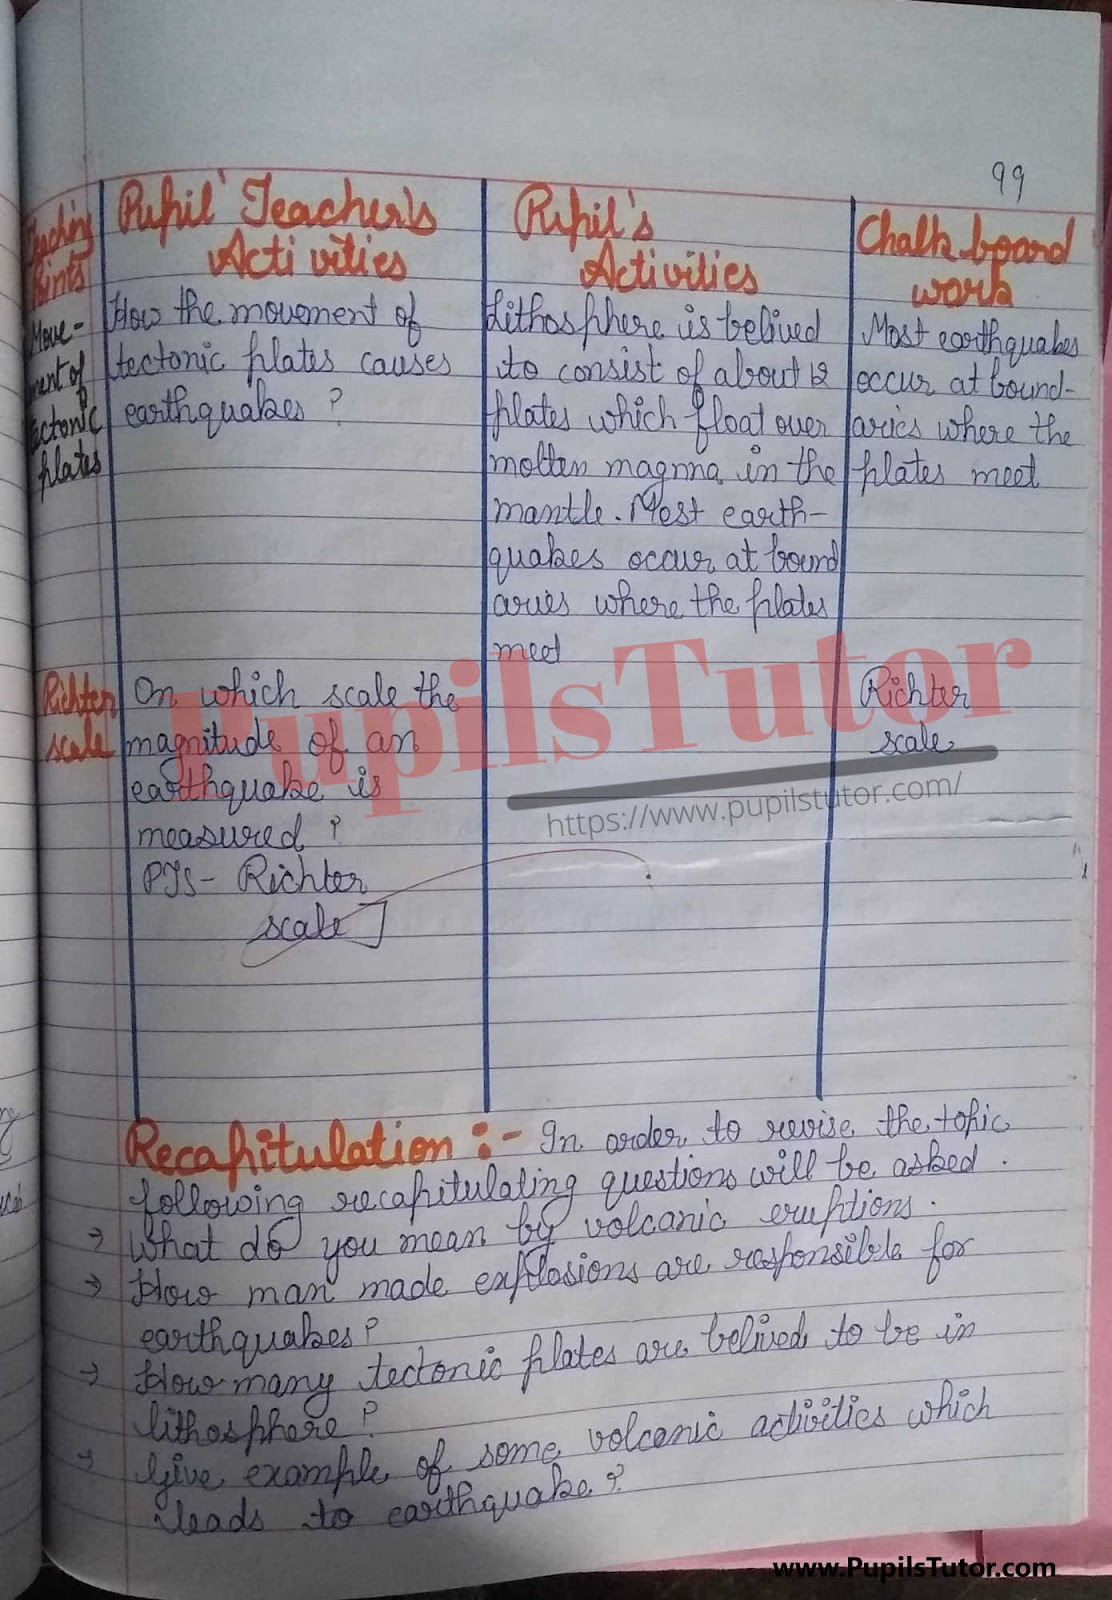 99
Teaching
Points
Pupil Teacher's
Activities
Pupil's
Activities
Chalk board
work
Move-
ment of
tectonic
plates
How the movement of
tectonic plates causes
earthquakes ?
Lithosphere is belived
to consist of about 12
plates which float over
molten magma in the
mantle. Most earth-
quakes occur at bound
aries where the plates
meet
Most earthquakes
occur at bound-
aries where the
plates meet
Richter
scale
On which scale the
magnitude of an
earthquake is
measured ?
PTS- Richter
scale]
Richter
scale
PupilsTutor
https://www.pupilstutor.com/
Recapitulation :- In order to revise the topic
following recapitulating questions will be asked.
→ What do you mean by volcanic eruptions.
→ How man made explosions are responsible for
earthquakes?
→ How many tectonic plates are belived to be in
lithosphere ?
→ Give example of some volcanic activities which
leads to earthquake ?
www.PupilsTutor.com